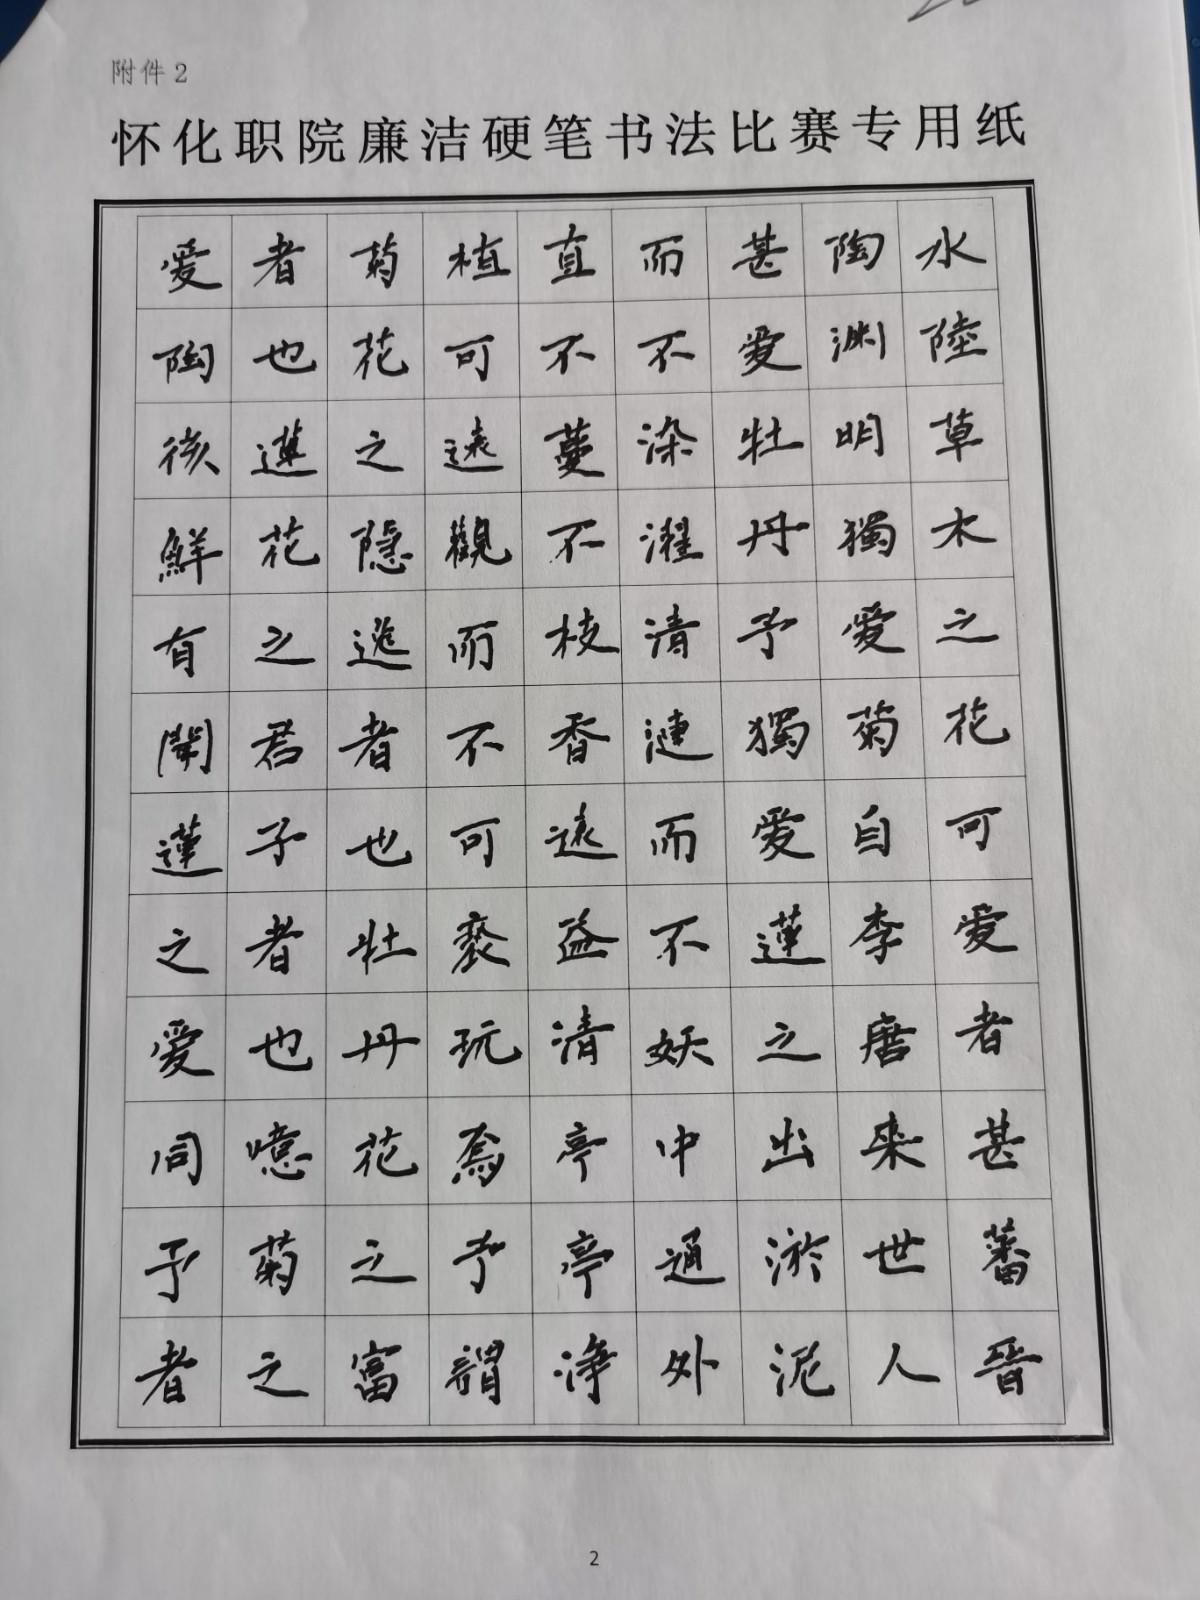 附件2
怀化职院廉洁硬笔书法比赛专用纸
水陸草木之花可愛者甚蕃晉
陶渊明獨愛菊自李唐来世人
甚愛牡丹予獨愛蓮之出淤泥
而不染濯清漣而不妖中通外
直不蔓不枝香遠益清亭亭净
植可遠觀而不可褻玩焉予謂
菊花之隱逸者也牡丹花之富
者也蓮花之君子者也噫菊之
愛陶後鮮有聞蓮之愛同予者
2